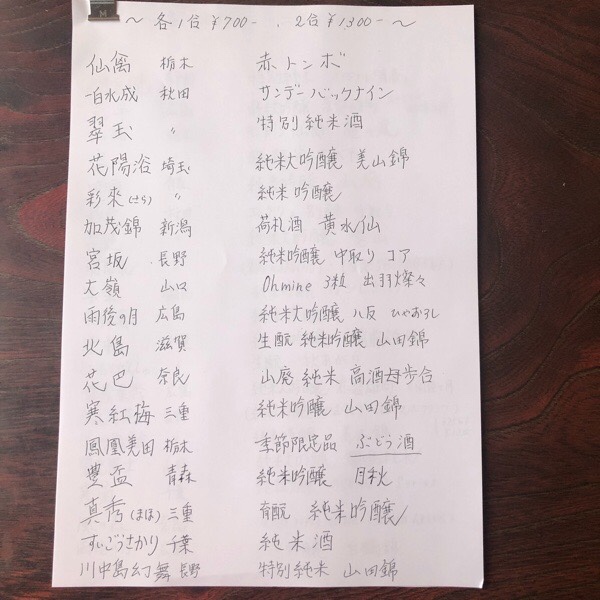 ～ 各1合 ¥700- 、2合 ¥1300- ～
仙禽 栃木 赤トンボ
一白水成 秋田 サンデーバックナイン
翠玉 〃 特別純米酒
花陽浴 埼玉 純米大吟醸 美山錦
彩來(さら) 〃 純米吟醸
加茂錦 新潟 荷札酒 黄水仙
宮坂 長野 純米吟醸 中取り コア
大嶺 山口 Ohmine 3粒 出羽燦々
雨後の月 広島 純米大吟醸 八反 ひやおろし
北島 滋賀 生酛 純米吟醸 山田錦
花巴 奈良 山廃 純米 高酒母歩合
寒紅梅 三重 純米吟醸 山田錦
鳳凰美田 栃木 季節限定品 ぶどう酒
豊盃 青森 純米吟醸 月秋
真秀(まほ) 三重 純米吟醸
すいごうさかり 千葉 純米酒
川中島幻舞 長野 特別純米 山田錦